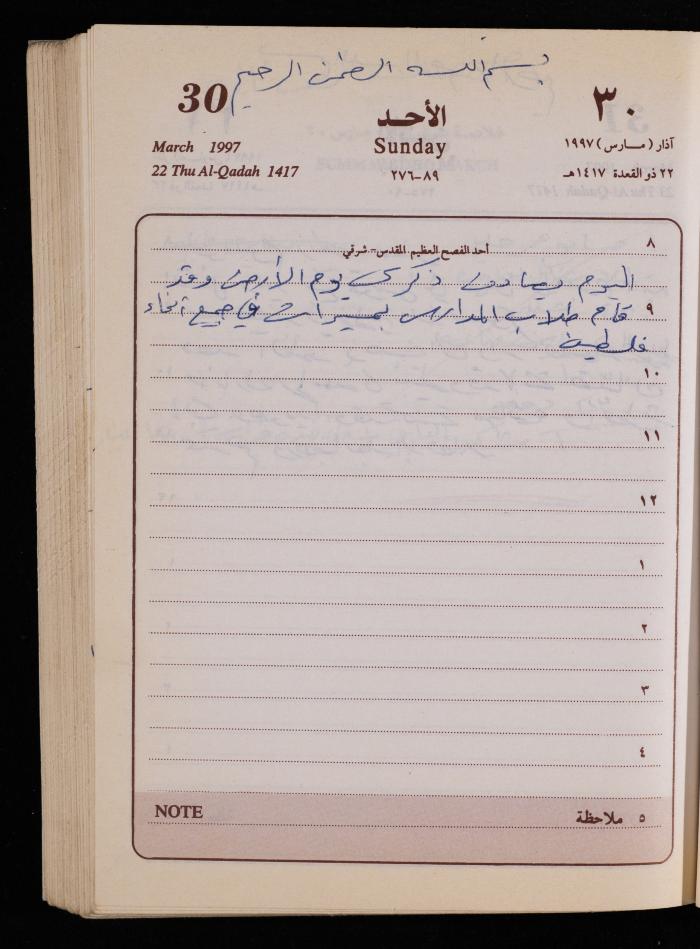 بسم الله الرحمن الرحيم
30
٣٠
الأحد
Sunday
March 1997
آذار (مارس) ١٩٩٧
22 Thu Al-Qadah 1417
٨٩-٢٧٦
٢٢ ذو القعدة ١٤١٧هـ
٨
أحد الفصح العظيم المقدس - شرقي
اليوم يصادف ذكرى يوم الأرض وقد
٩
قام طلاب المدارس بمسيرات في جميع أنحاء
فلسطين
١٠
١١
١٢
١
٢
٣
٤
NOTE
٥ ملاحظة